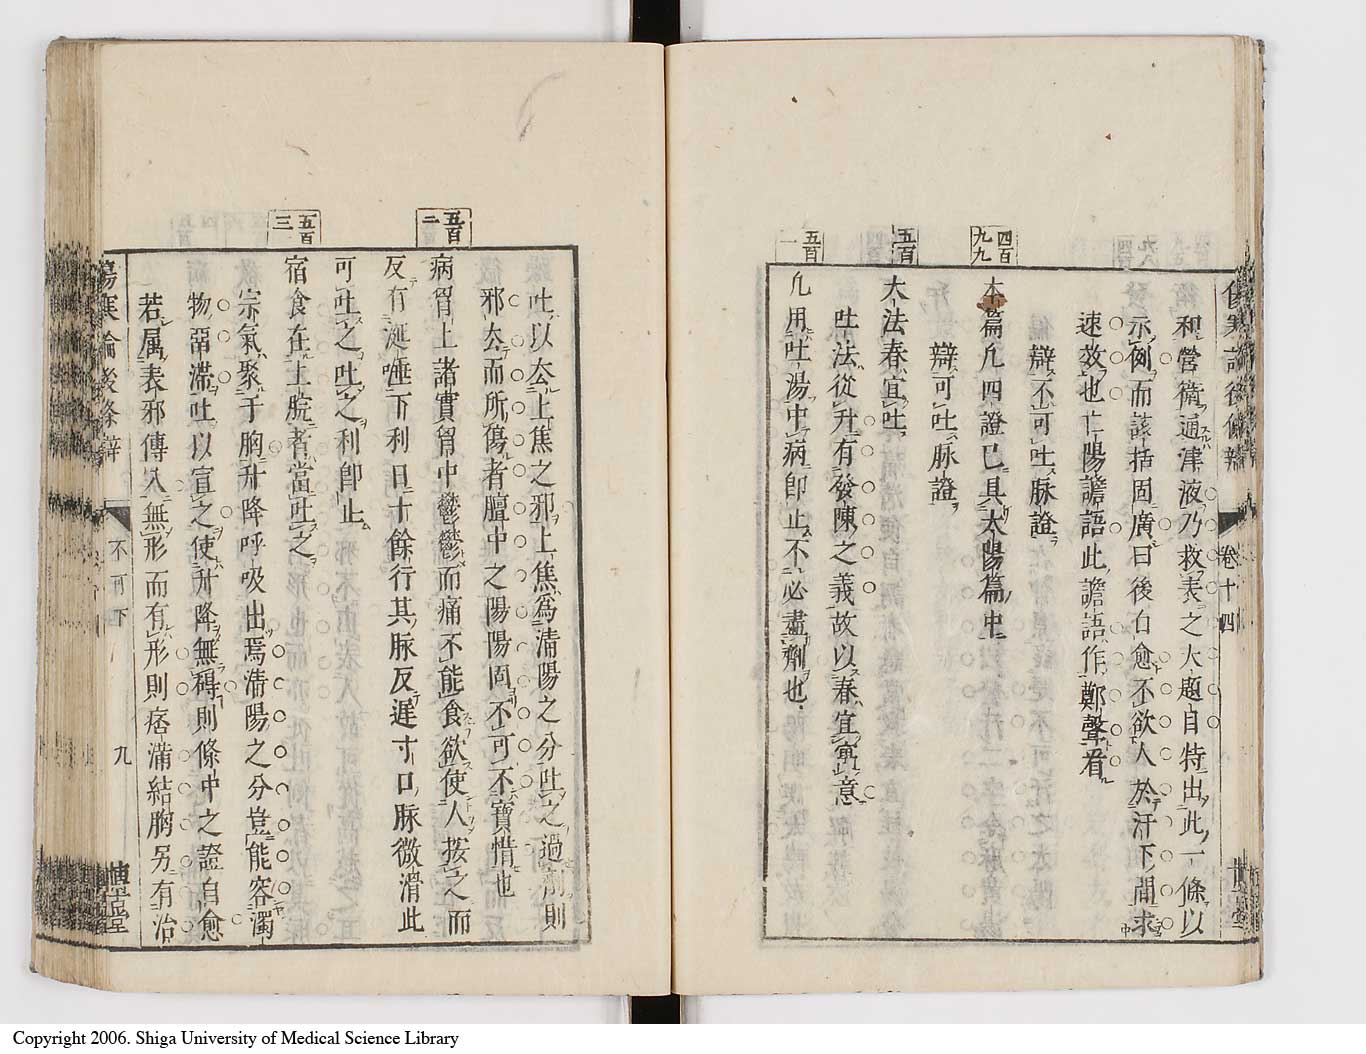 和營衞通津液乃救表之大題自特出此一條以
示例而該括固廣曰後自愈不欲人於汗下間求
速效也亡陽譫語此譫語作鄭聲看
辯不可吐脉證
四百九九
本篇凡四證已具太陽篇中
辯可吐脉證
五百
大法春宜吐
吐法從升有發陳之義故以春宜寓意
五百一
凡用吐湯中病即止不必盡劑也
卷十四
吐以去上焦之邪上焦爲清陽之分吐之過則
邪去而所傷者膻中之陽陽固不可不寶惜也
五百二
病胷上諸實胷中鬱鬱而痛不能食欲使人按之而
反有涎唾下利日十餘行其脉反遲寸口脉微滑此
可吐之吐之利即止
五百三
宿食在上脘者當吐之
宗氣聚于胸升降呼吸出焉清陽之分豈能容濁
物留滯吐以宣之使升降無碍則條中之證自愈
若属表邪傳入無形而有形則痞滿結胸另有治
傷寒論後條辯
不可下
九
博古堂
Copyright 2006. Shiga University of Medical Science Library